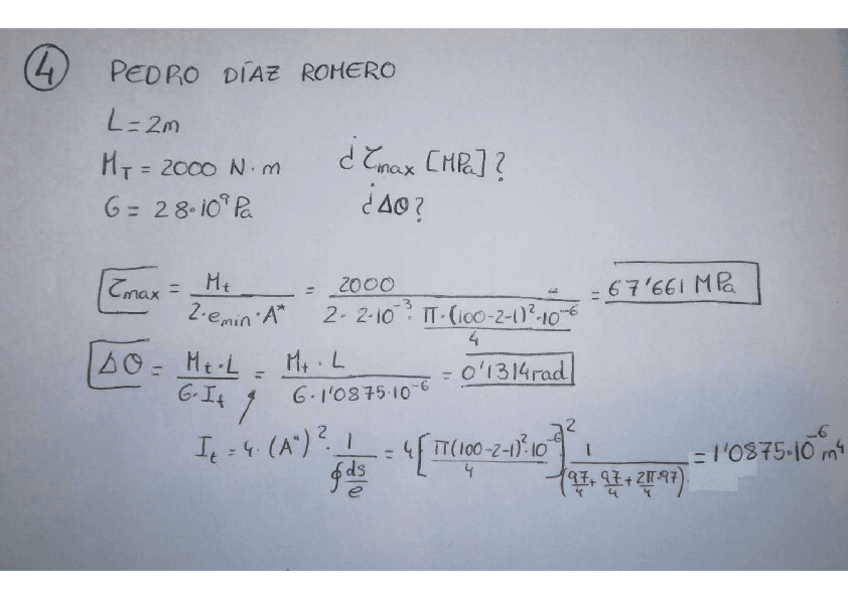 ④ PEDRO DÍAZ ROMERO
L = 2m
M_T = 2000 N·m ¿ τ_max [MPa] ?
G = 28·10⁹ Pa ¿ Δθ ?
τ_max = M_t / (2·e_min·A*) = 2000 / (2·2·10⁻³· π·(100-2-1)²·10⁻⁶ / 4) = 67'661 MPa
Δθ = M_t·L / (G·I_t) = M_t·L / (G·1'0875·10⁻⁶) = 0'1314 rad
I_t = 4·(A*)²· 1 / ∮ ds/e = 4 [ π(100-2-1)²·10⁻⁶ / 4 ]² 1 / (97/4 + 97/4 + 2π·97/4) = 1'0875·10⁻⁶ m⁴